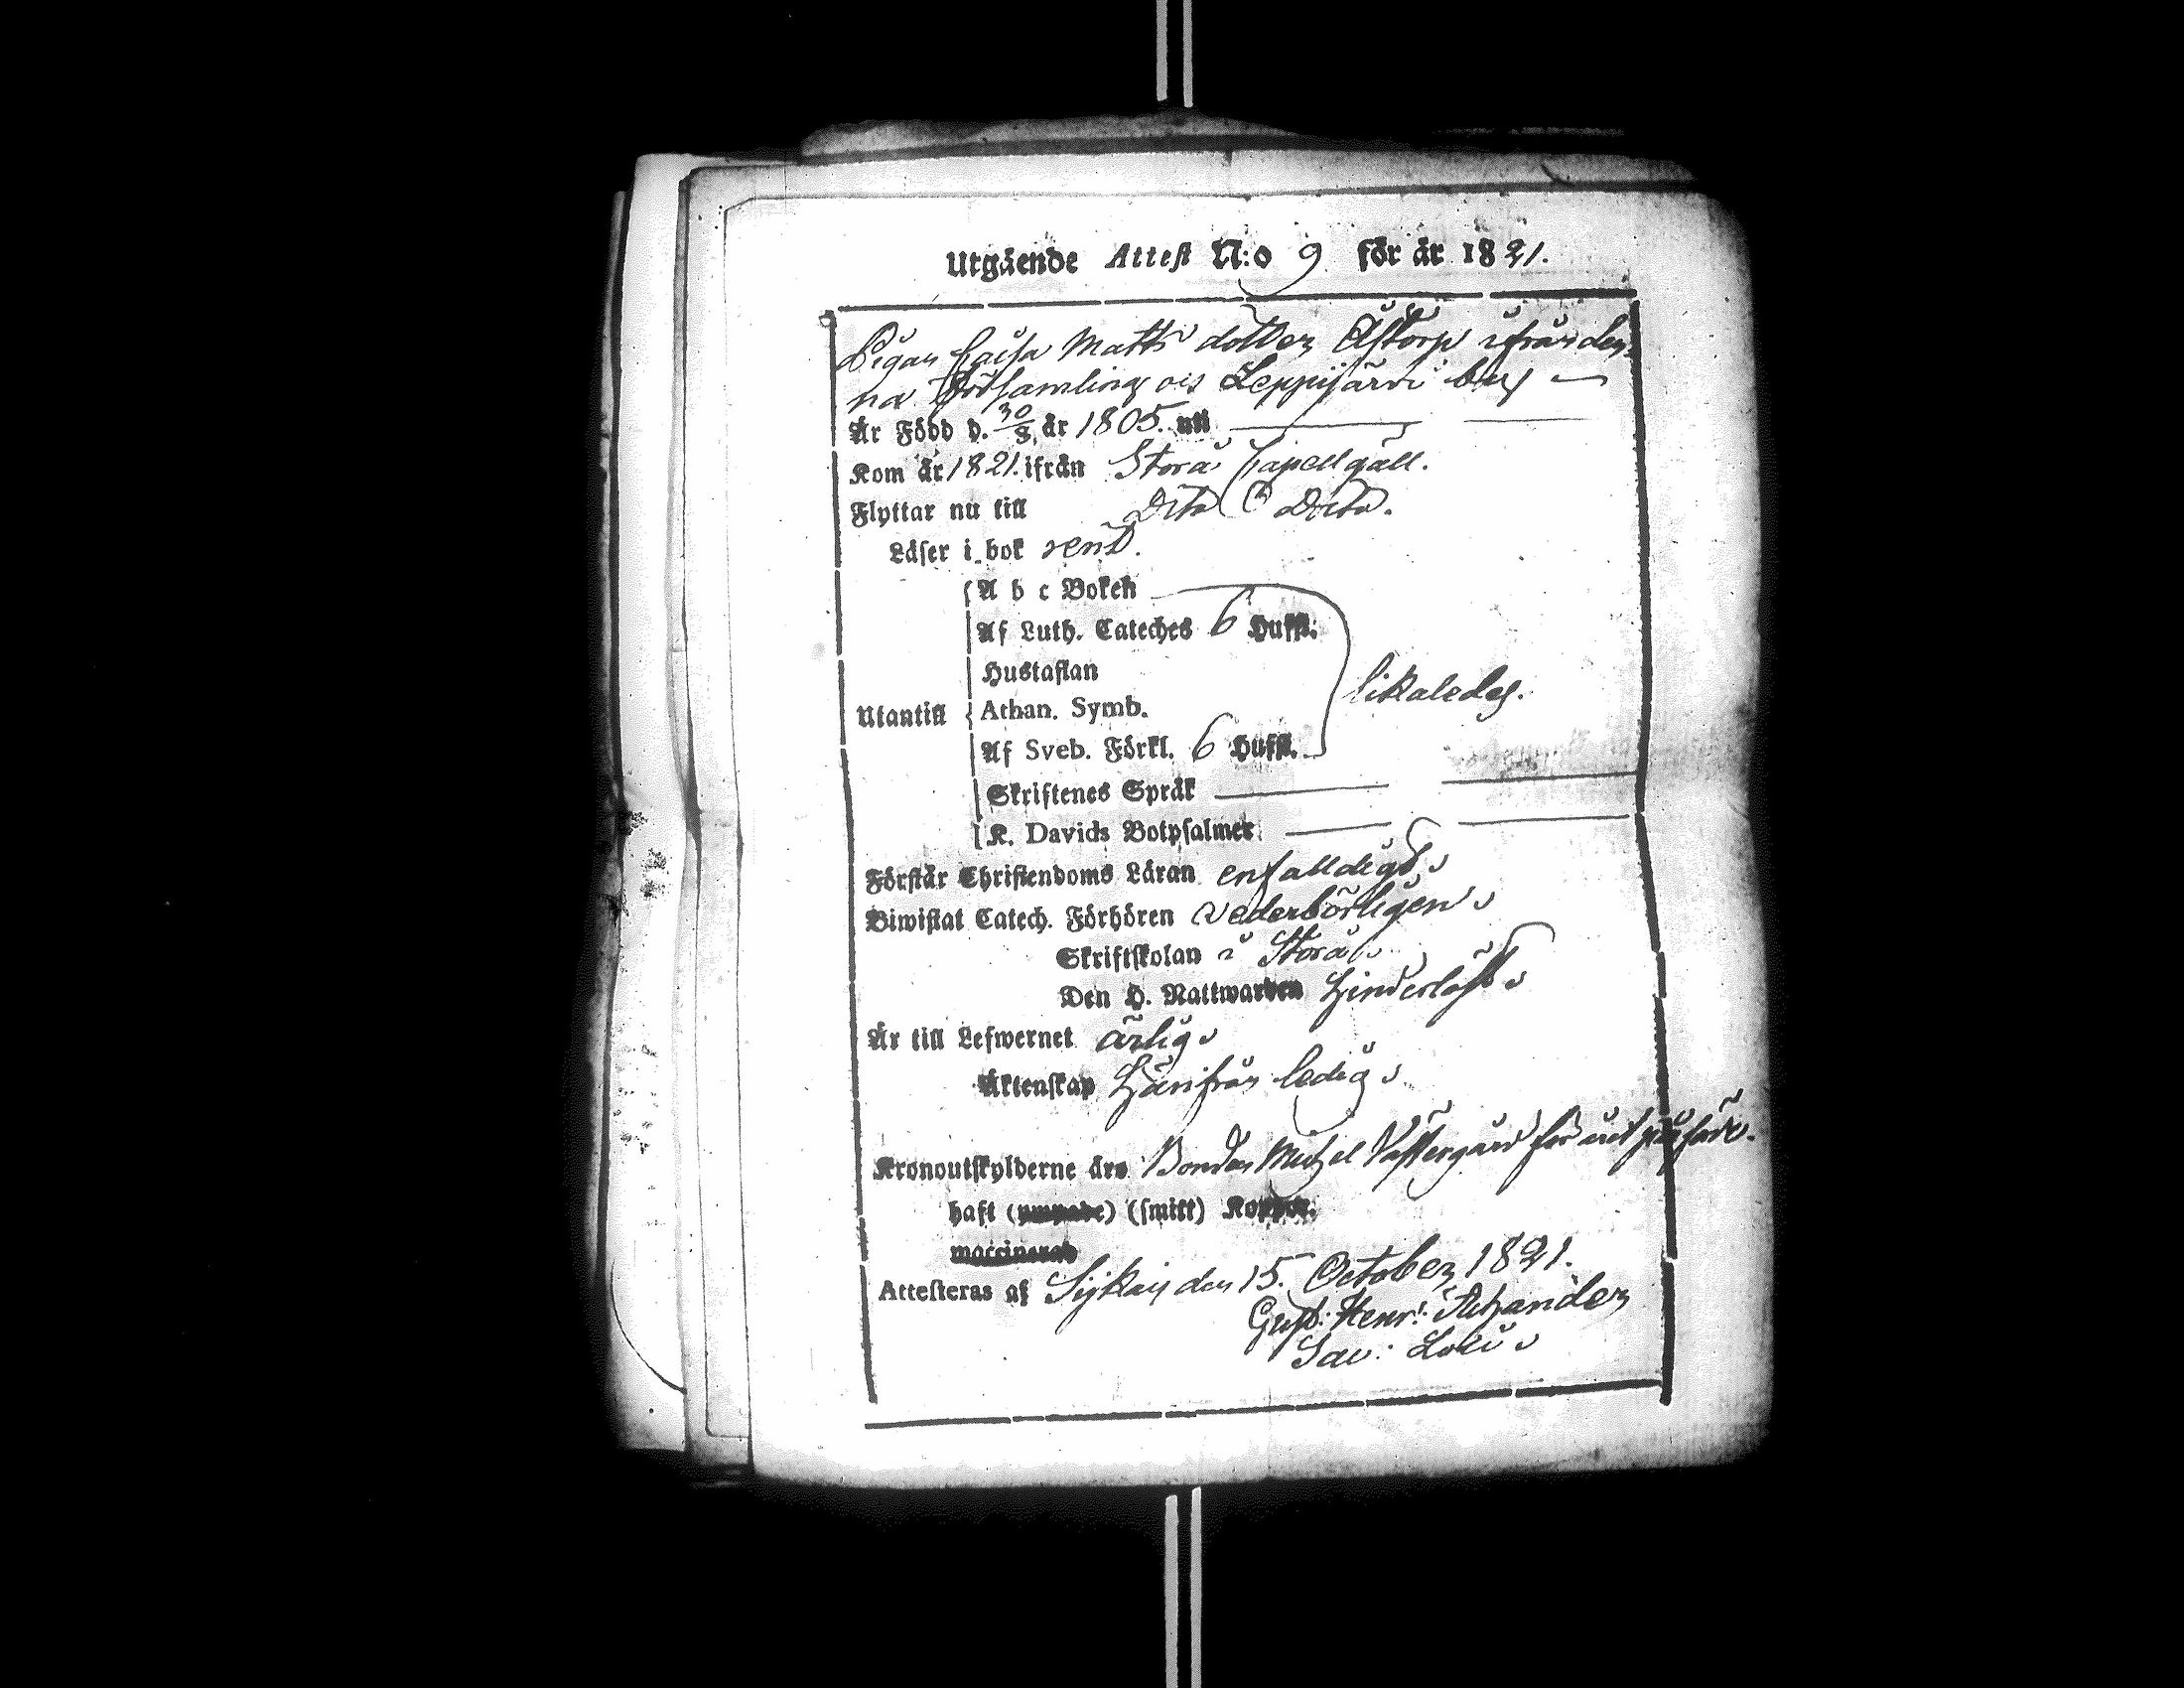 Utgående Attest N:o 9 för år 1821.
Pigan Caisa Matts dotter Åstorp ifrån den-
na Församling ois Leppijärvi by —
Är Född d. 30/8 år 1805. uti
Kom år 1821. ifrån Storå Capellgäll.
Flyttar nu till Dito Dito.
Läser i bok rent.
A b c Boken
Af Luth. Cateches 6 Hufst.
Hustaflan
Utantill Athan. Symb. likaledes.
Af Sveb. Förkl. 6 Hufst.
Skriftenes Språk
K. Davids Botpsalmer
Förstår Christendoms Läran enfalldigt
Biwistat Catech. Förhören vederbörligen
Skriftskolan i Storå
Den H. Nattwarden Hinderlöst
Är till Lefwernet ärlig
Äktenskap Härifrån ledig
Kronoutskylderne äro Bonden Michel Västergård för
haft (ympade) (smitt) Koppor.
waccinerad
Attesteras af den 15. October 1821.
Gust: Henr: